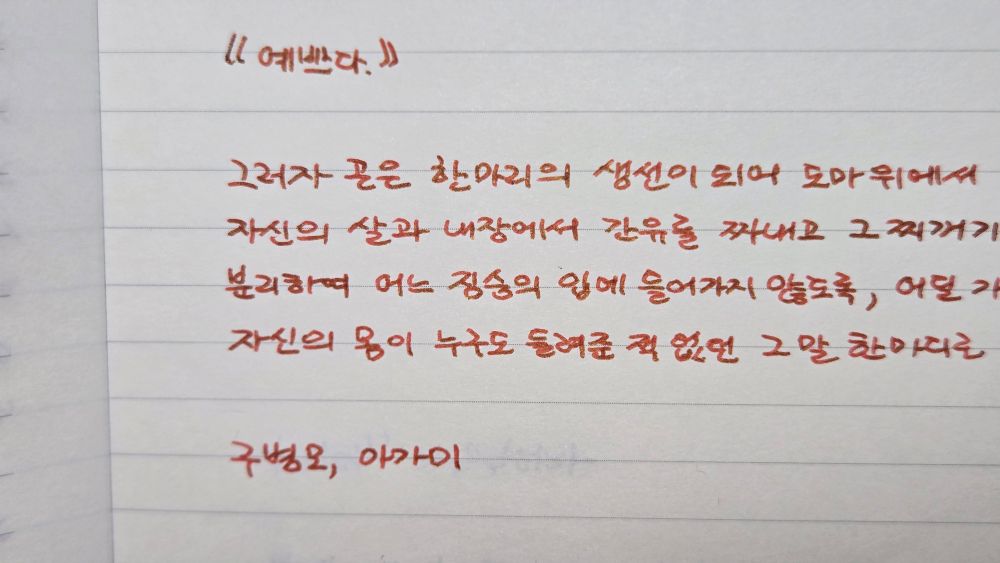 《예쁘다.》
그러자 곤은 한마리의 생선이 되어 도마위에서
자신의 살과 내장에서 간유를 짜내고 그 찌꺼기
분리하며 어느 짐승의 입에 들어가지 않도록, 어딜 가
자신의 몸이 누구도 들려준 적 없던 그 말 한마디로
구병모, 아가미